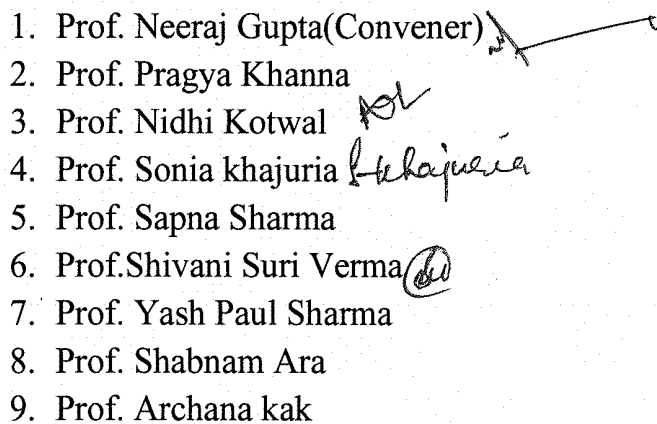 1. Prof. Neeraj Gupta(Convener)
2. Prof. Pragya Khanna
3. Prof. Nidhi Kotwal
4. Prof. Sonia khajuria S-khajuria
5. Prof. Sapna Sharma
6. Prof.Shivani Suri Verma
7. Prof. Yash Paul Sharma
8. Prof. Shabnam Ara
9. Prof. Archana kak